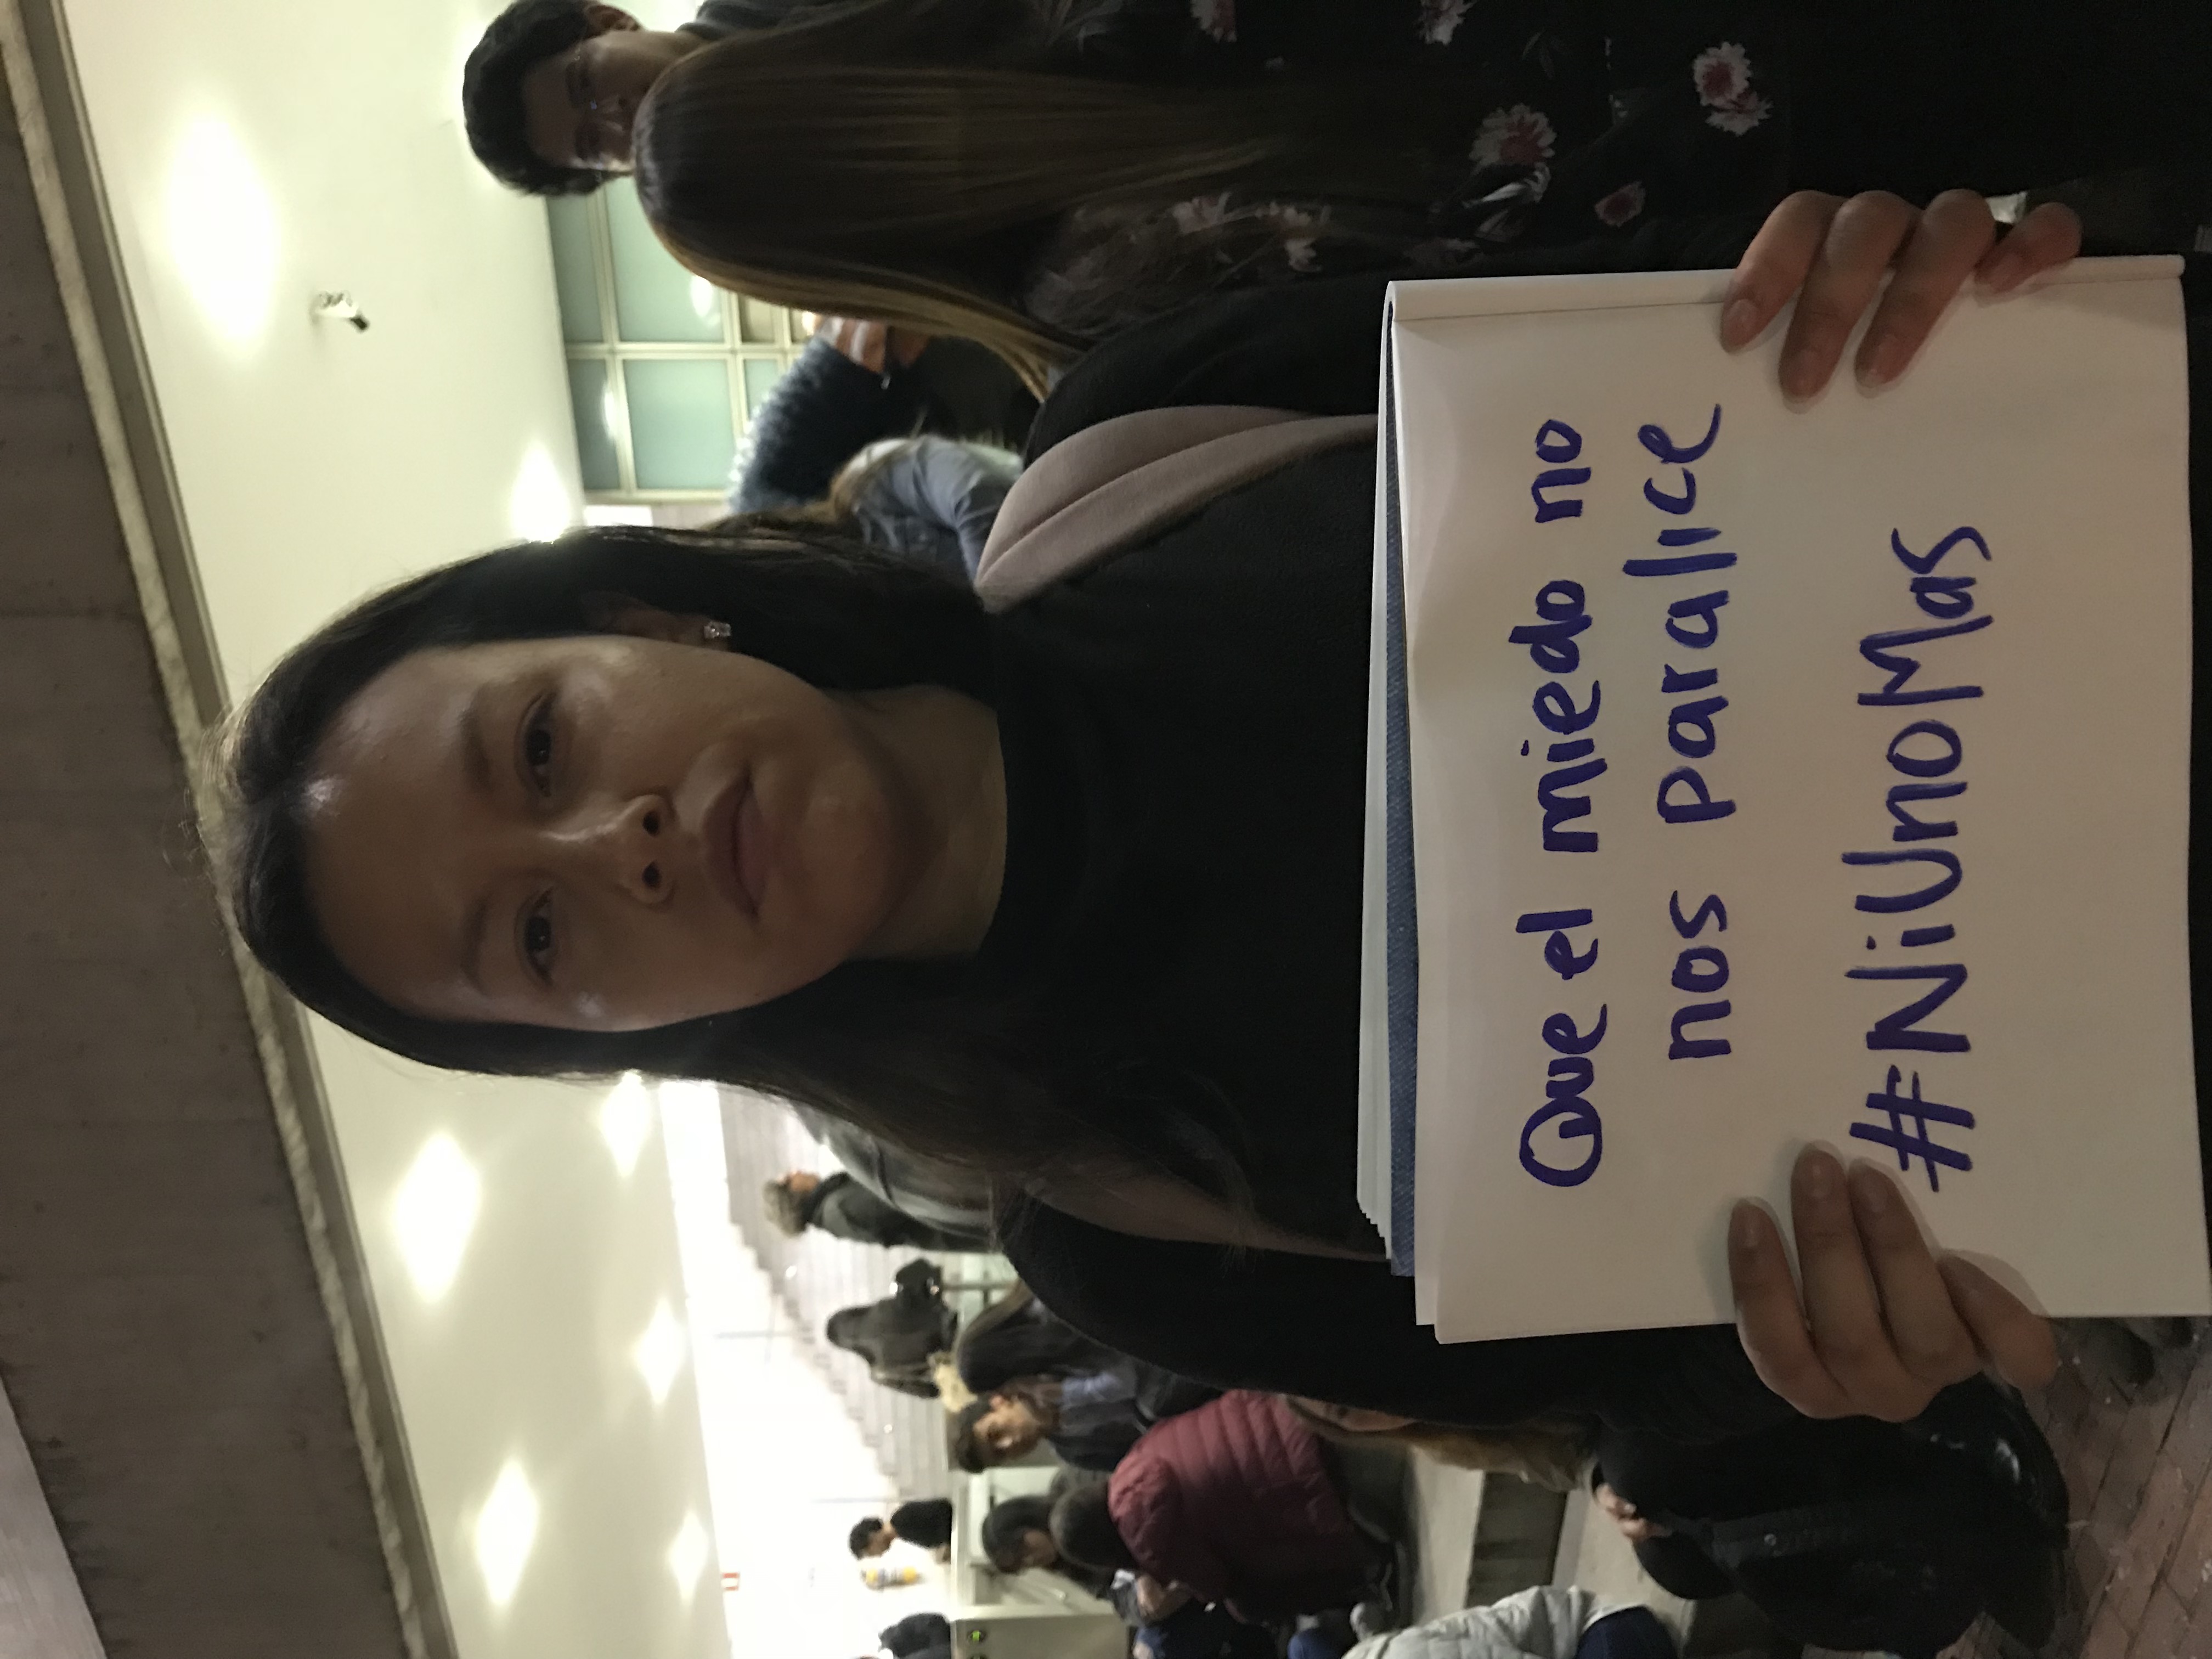 Que el miedo no
nos paralice
#NiUnoMas